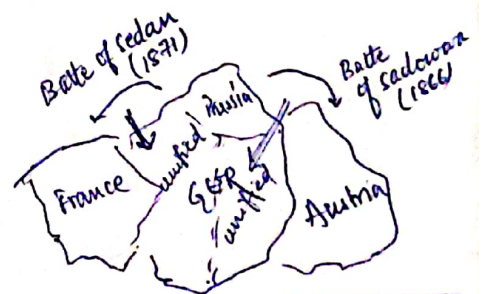 Batte of sedan
(1871)
Batte
of sadowa
(1866)
Prusia
unified
France
GER
unified
Austria